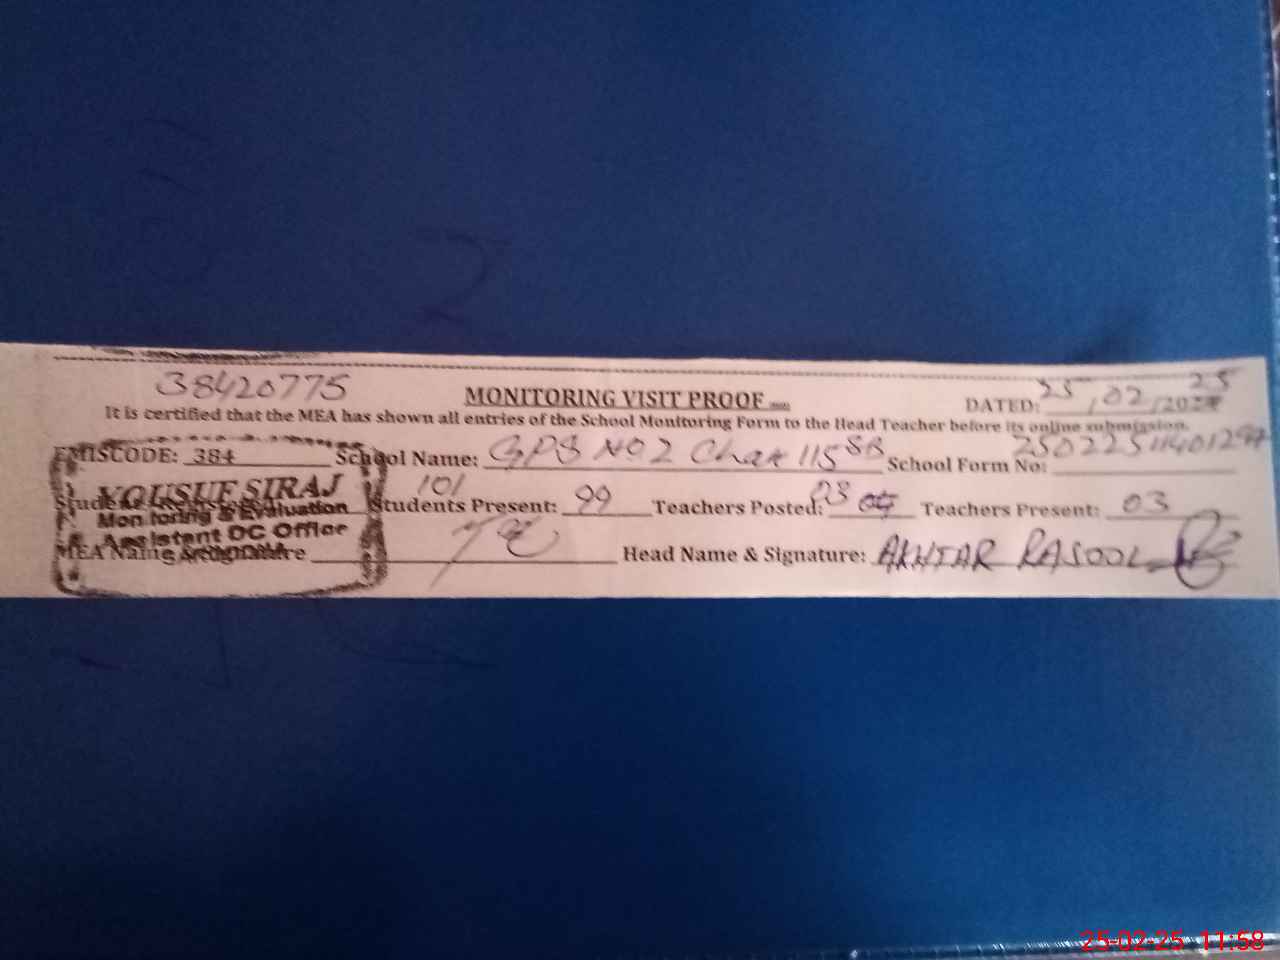 38420775
MONITORING VISIT PROOF
DATED: 25/02/2025
It is certified that the MEA has shown all entries of the School Monitoring Form to the Head Teacher before its online submission.
EMISCODE: 384 School Name: GPS NO 2 Chak 115 SB School Form No:
101
Students Present: 99 Teachers Posted: 03 Teachers Present: 03
YOUSUF SIRAJ
Monitoring & Evaluation
Assistant DC Office
MEA Name & Signature Head Name & Signature: AKHTAR RASOOL
25-02-25 11:58